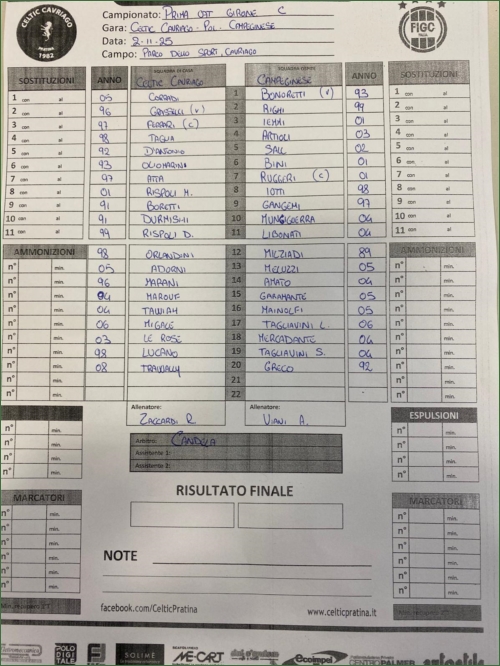 CELTIC CAVRIAGO
PRATINA
1982
Campionato: PRIMA CAT GIRONE C
Gara: CELTIC CAVRIAGO - POL. CAMPEGINESE
Data: 2-11-25
Campo: PARCO DELLO SPORT, CAVRIAGO
FIGC
SOSTITUZIONI ANNO SQUADRA DI CASA CELTIC CAVRIAGO SQUADRA OSPITE CAMPEGINESE ANNO SOSTITUZIONI
1 con al 05 CORRADI 1 BONORETTI (V) 93 1 con al
2 con al 96 GRASSELLI (V) 2 RIGHI 99 2 con al
3 con al 97 FERRARI (C) 3 IEMMI 01 3 con al
4 con al 98 TAGLIA 4 ARTIOLI 03 4 con al
5 con al 92 D'ANTONIO 5 SALL 02 5 con al
6 con al 93 OLIOMARINI 6 BINI 01 6 con al
7 con al 97 ATTA 7 RUGGERI (C) 01 7 con al
8 con al 01 RISPOLI M. 8 IOTTI 98 8 con al
9 con al 91 BORETTI 9 GANGEMI 97 9 con al
10 con al 91 DURMISHI 10 MUNGIGUERRA 04 10 con al
11 con al 99 RISPOLI D. 11 LIBONATI 04 11 con al
AMMONIZIONI 98 ORLANDINI 12 MILZIADI 89 AMMONIZIONI
n° min. 05 ADORNI 13 MELUZZI 05 n° min.
n° min. 96 MARANI 14 AMATO 04 n° min.
n° min. 04 MAROUF 15 GARAMANTE 05 n° min.
n° min. 04 TAWIAH 16 MAINOLFI 05 n° min.
n° min. 06 MIGALE 17 TAGLIAVINI L. 06 n° min.
n° min. 03 LE ROSE 18 MERCADANTE 04 n° min.
n° min. 98 LUCANO 19 TAGLIAVINI S. 04 n° min.
n° min. 08 TRAWALLY 20 GRECO 92 n° min.
n° min. 21 n° min.
n° min. 22 n° min.
Allenatore: ZACCARDI R. Allenatore: VIANI A.
ESPULSIONI
Arbitro: CANDELA
Assistente 1:
Assistente 2:
n° min. n° min.
n° min. n° min.
n° min. n° min.
RISULTATO FINALE
MARCATORI MARCATORI
n° min. n° min.
n° min. n° min.
n° min. n° min.
n° min. n° min.
n° min. n° min.
NOTE
facebook.com/CelticPratina www.celticpratina.it
POLO DIGITALE SOLIME ME-CART Ecoimpel CENTRO PALMER